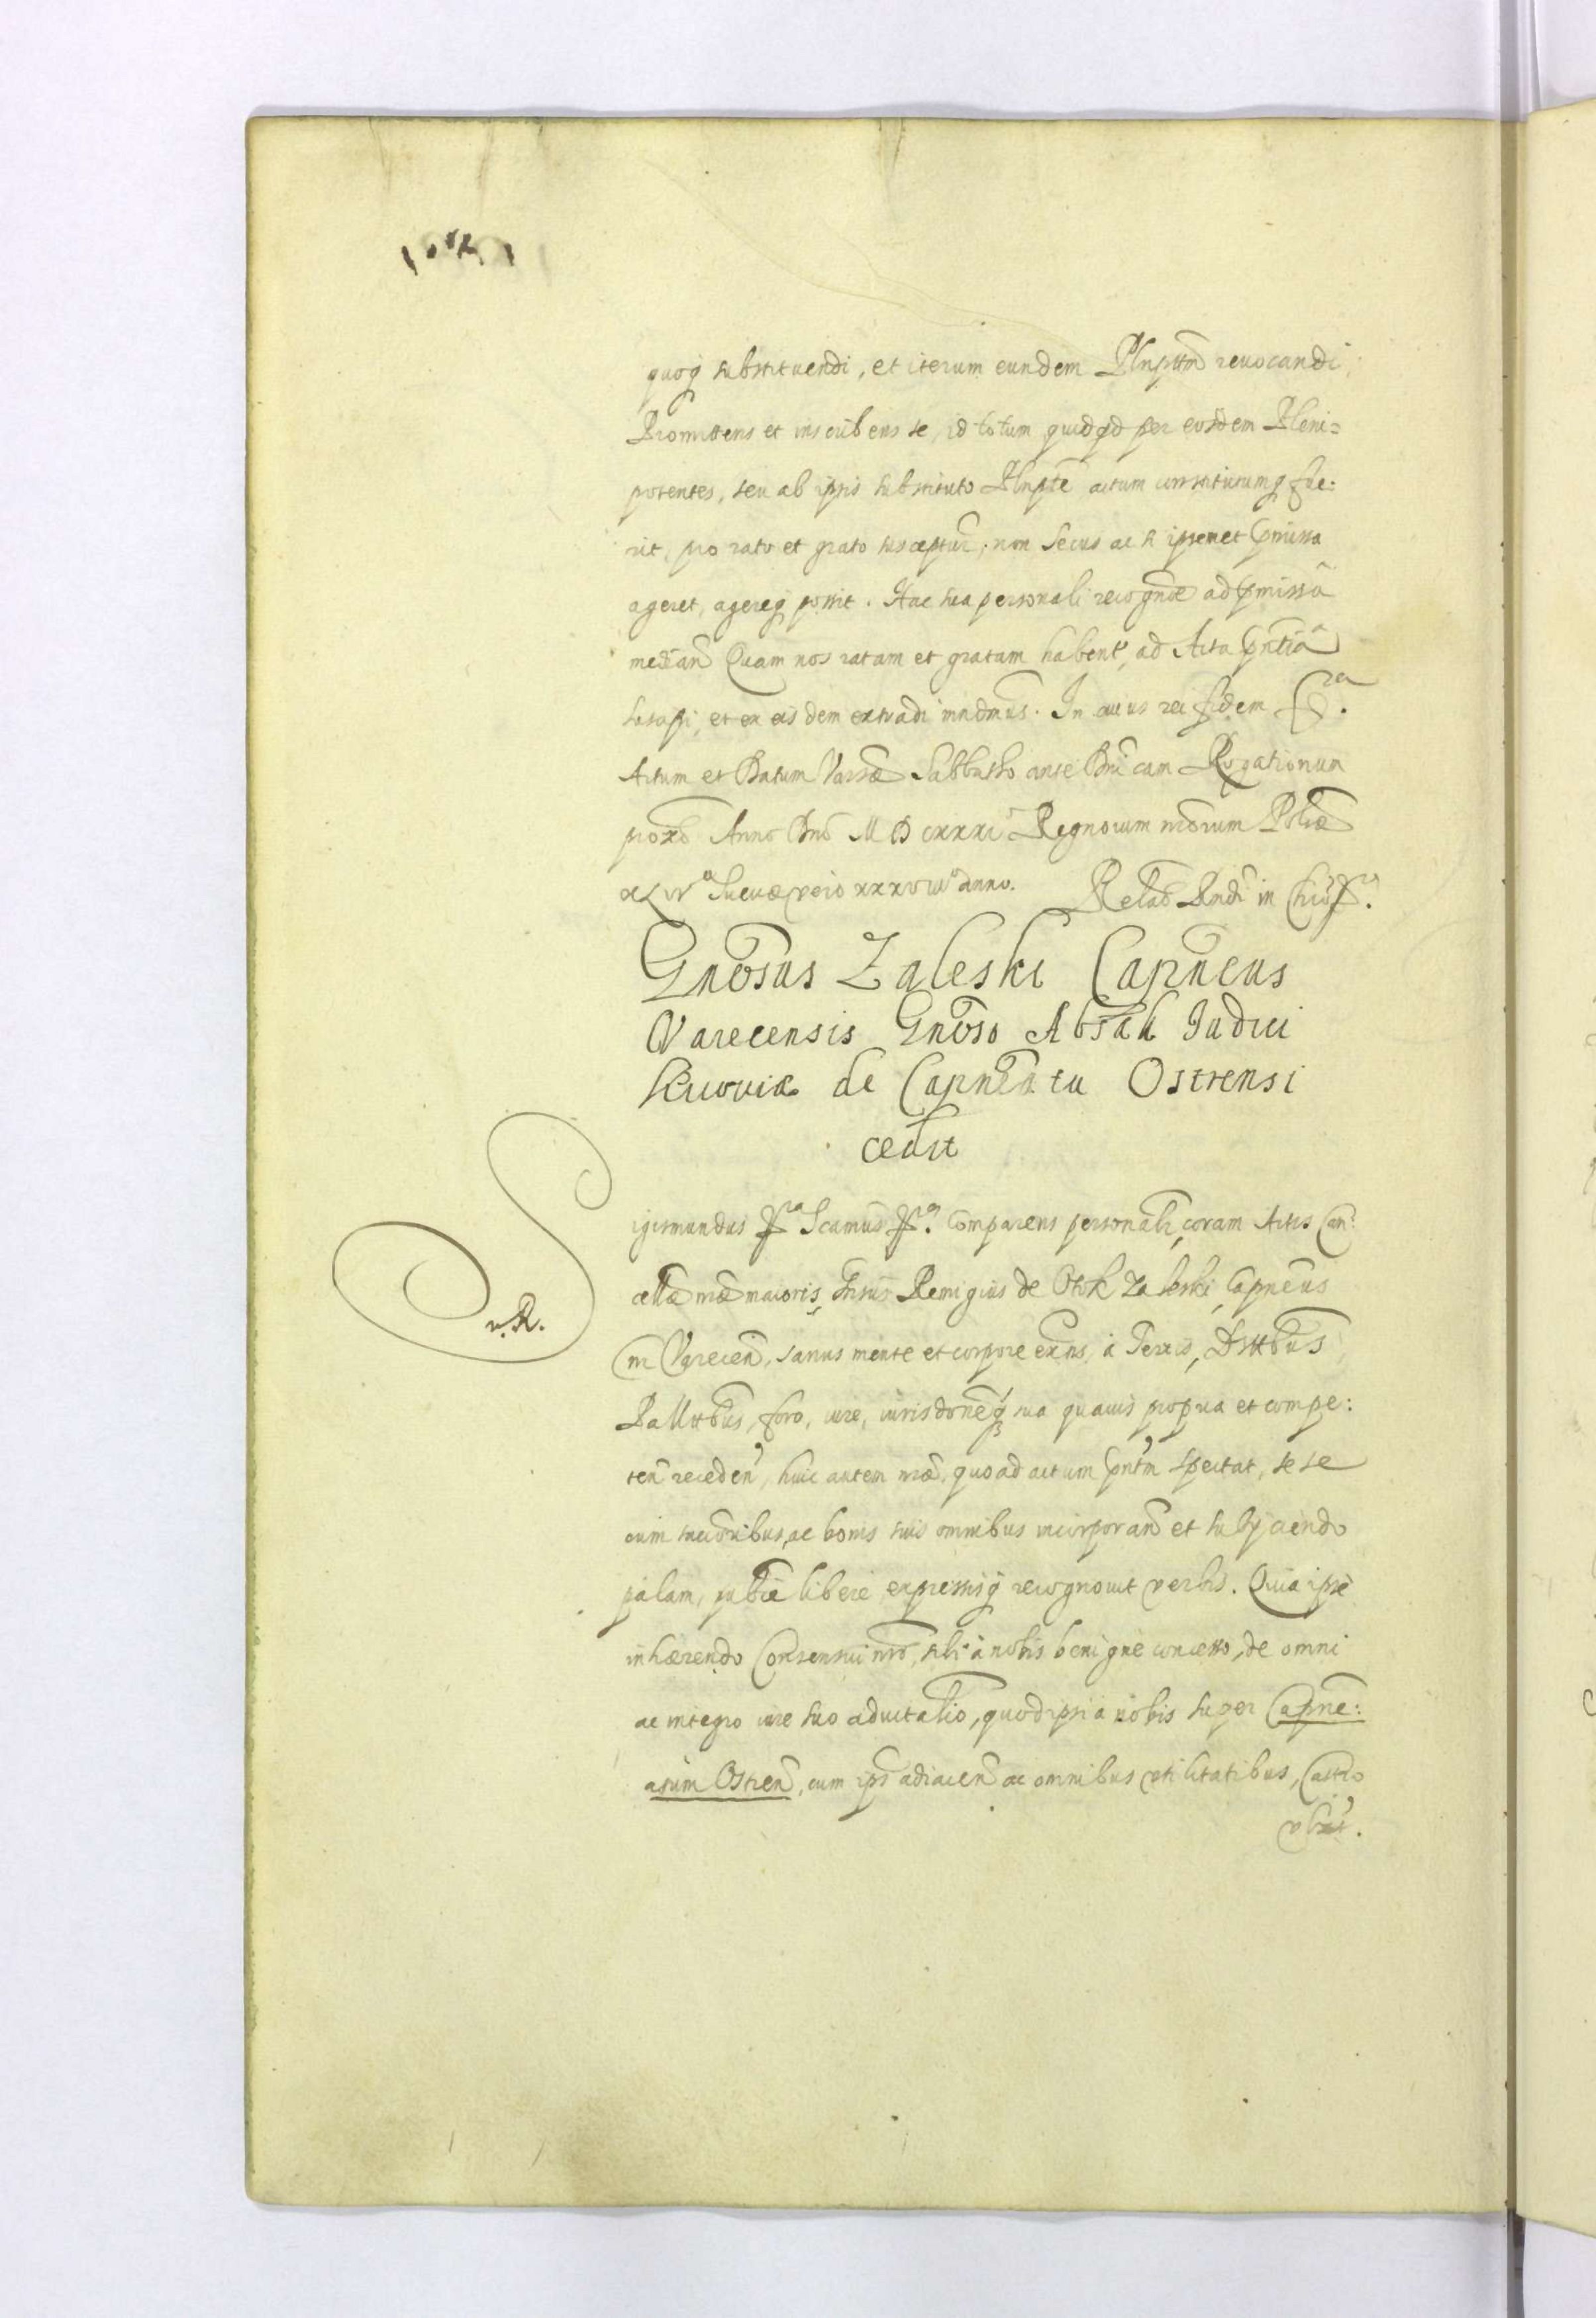 quoq substituendi, et iterum eundem Plnpttm revocandi,
Promittens et inscribens se, id totum quidqd per eosdem Pleni=
potentes, seu ab ipsis substituto Plnpte actum constitutumq fue:
rit, pro rato et grato suscepturū, non secus ac si ipsemet pmissa
ageret, agereq possit. Hac sua personali recognōe ad pmissā
median Quam nos ratam et gratam habent, ad Acta pntiā
suscepi, et ex eisdem extradi mndmūs. In cuius rei fidem
Actum et Datum Varsæ Sabbatho ante Dnicam Rogationum
poxō Anno Dnī M D cxxxi Regnorum nrōrum Polōæ
xLiv Sueuæ vero xxxviii anno. Relaō Rndī in Chrō P.
Gnōsus Zaleski Capnēus
Varecensis Gnōso Absak Iudici
Kiiouiæ de Capnēatu Ostrensi
cedit
igismundus Scamus Comparens personalr coram Actis Can:
cellæ næ maioris, Gnsus Remigius de Otok Zaleski, Capnēus
nr Varecen, sanus mente et corpore exns, à Terris, Dsttbus
Pallttbus, foro, iure, iurisdonēq sua quauis propria et compe:
ten receden, huic autem næ, quoad actum pntm spectat, sese
cum succoribus ac bonis suis omnibus incorporan et subijciendo
palam, publice libere expressisq recognouit verbis. Quia ipse
inhærendo Consensui nro, sibi à nobis benigne concesso, de omni
ac integro iure suo aduitalio, quod ipsi à nobis super Capne:
atum Ostren, cum ips adiacen ac omnibus vtilitatibus, Castro